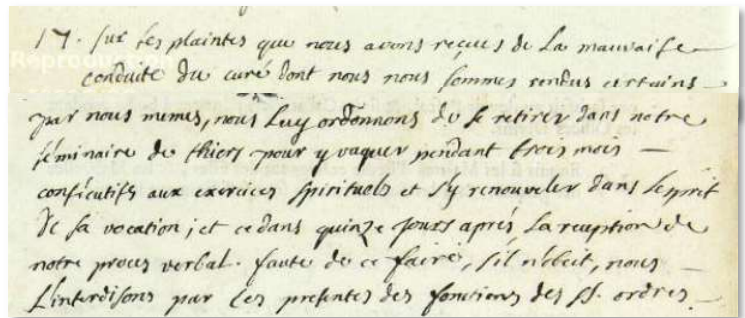 17. sur les plaintes que nous avons reçues de la mauvaise
conduite du curé dont nous nous sommes rendus certains
par nous memes, nous luy ordonnons de se retirer dans notre
séminaire de thiers pour y vaquer pendant trois mois
consécutifs aux exercices spirituels et s'y renouveler dans l'esprit
de sa vocation ; et ce dans quinze jours après la reception de
notre proces verbal. faute de ce faire, s'il n'obeit, nous
L'interdisons par ces presentes des fonctions des SS. ordres